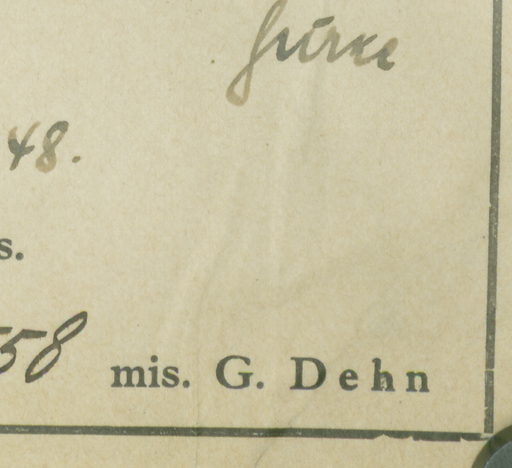 Gürke
48.
s.
58 mis. G. Dehn